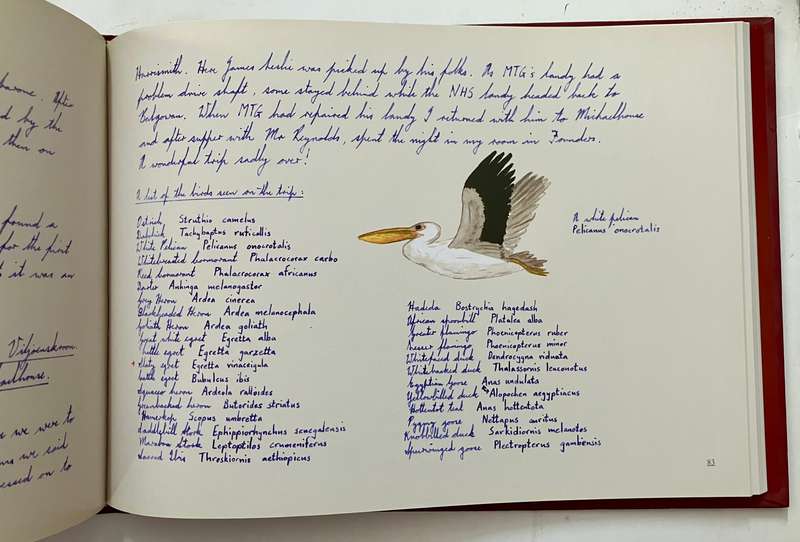 Harrismith. Here James Leslie was picked up by his folks. As MTG's landy had a
problem drive shaft, some stayed behind while the NHS landy headed back to
Balgowan. When MTG had repaired his landy I returned with him to Michaelhouse
and after supper with Mr Reynolds, spent the night in my room in Founders.
A wonderful trip sadly over!
A list of the birds seen on the trip:
Ostrich Struthio camelus
Dabchick Tachybaptus ruficollis
White Pelican Pelicanus onocrotalis
Whitebreasted cormorant Phalacrocorax carbo
Reed cormorant Phalacrocorax africanus
Darter Anhinga melanogastor
Grey Heron Ardea cinerea
Blackheaded Heron Ardea melanocephala
Goliath Heron Ardea goliath
Great white egret Egretta alba
Little egret Egretta garzetta
+ Slaty egret Egretta vinaceigula
Cattle egret Bubulcus ibis
Squacco heron Ardeola ralloides
Greenbacked heron Butorides striatus
Hamerkop Scopus umbretta
Saddlebill Stork Ephippiorhynchus senegalensis
Marabou Stork Leptoptilos crumeniferus
Sacred Ibis Threskiornis aethiopicus
A white pelican
Pelicanus onocrotalis
Hadeda Bostrychia hagedash
African spoonbill Platalea alba
Greater flamingo Phoenicopterus ruber
Lesser flamingo Phoenicopterus minor
Whitefaced duck Dendrocygna viduata
Whitebacked duck Thalassornis leuconotus
Egyptian goose Anas undulata
Yellowbilled duck Alopochen aegyptiacus
Hottentot teal Anas hottentota
Pygmy goose Nettapus auritus
Knobbilled duck Sarkidiornis melanotos
Spurwinged goose Plectropterus gambensis
83